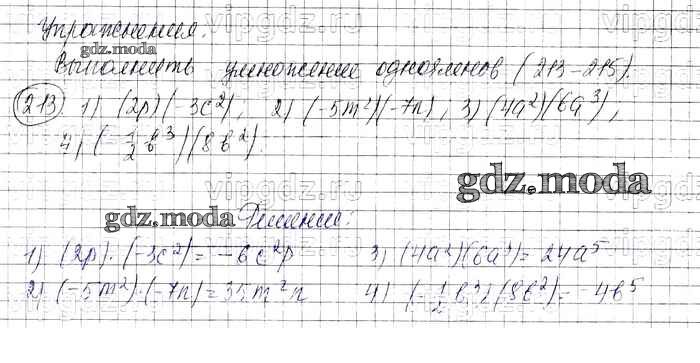 Упражнения.
gdz.moda
Выполнить умножение одночленов (213-215).
213 1) (2p)(-3c²), 2) (-5m²)(-7n), 3) (4a²)(6a³),
4) (-1/2 b³)(8b²).
gdz.moda
gdz.moda Решение:
1) (2p)·(-3c²)=-6c²p 3) (4a²)(6a³)=24a⁵
2) (-5m²)·(-7n)=35m²n 4) (-1/2 b³)(8b²)=-4b⁵
vipgdz.ru